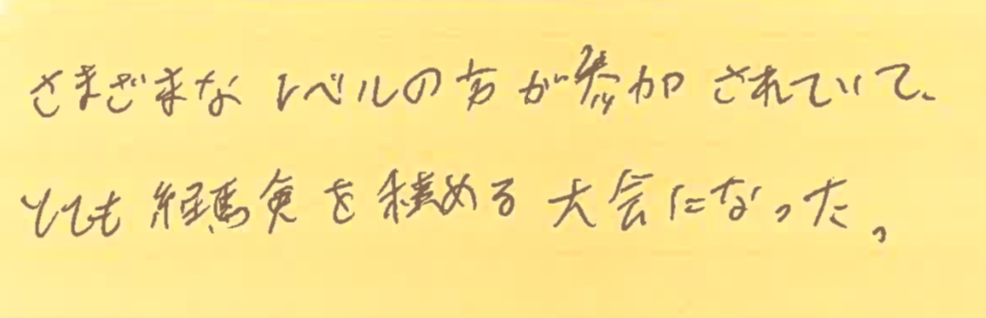 さまざまなレベルの方が参加されていて、
とても経験を積める大会になった。